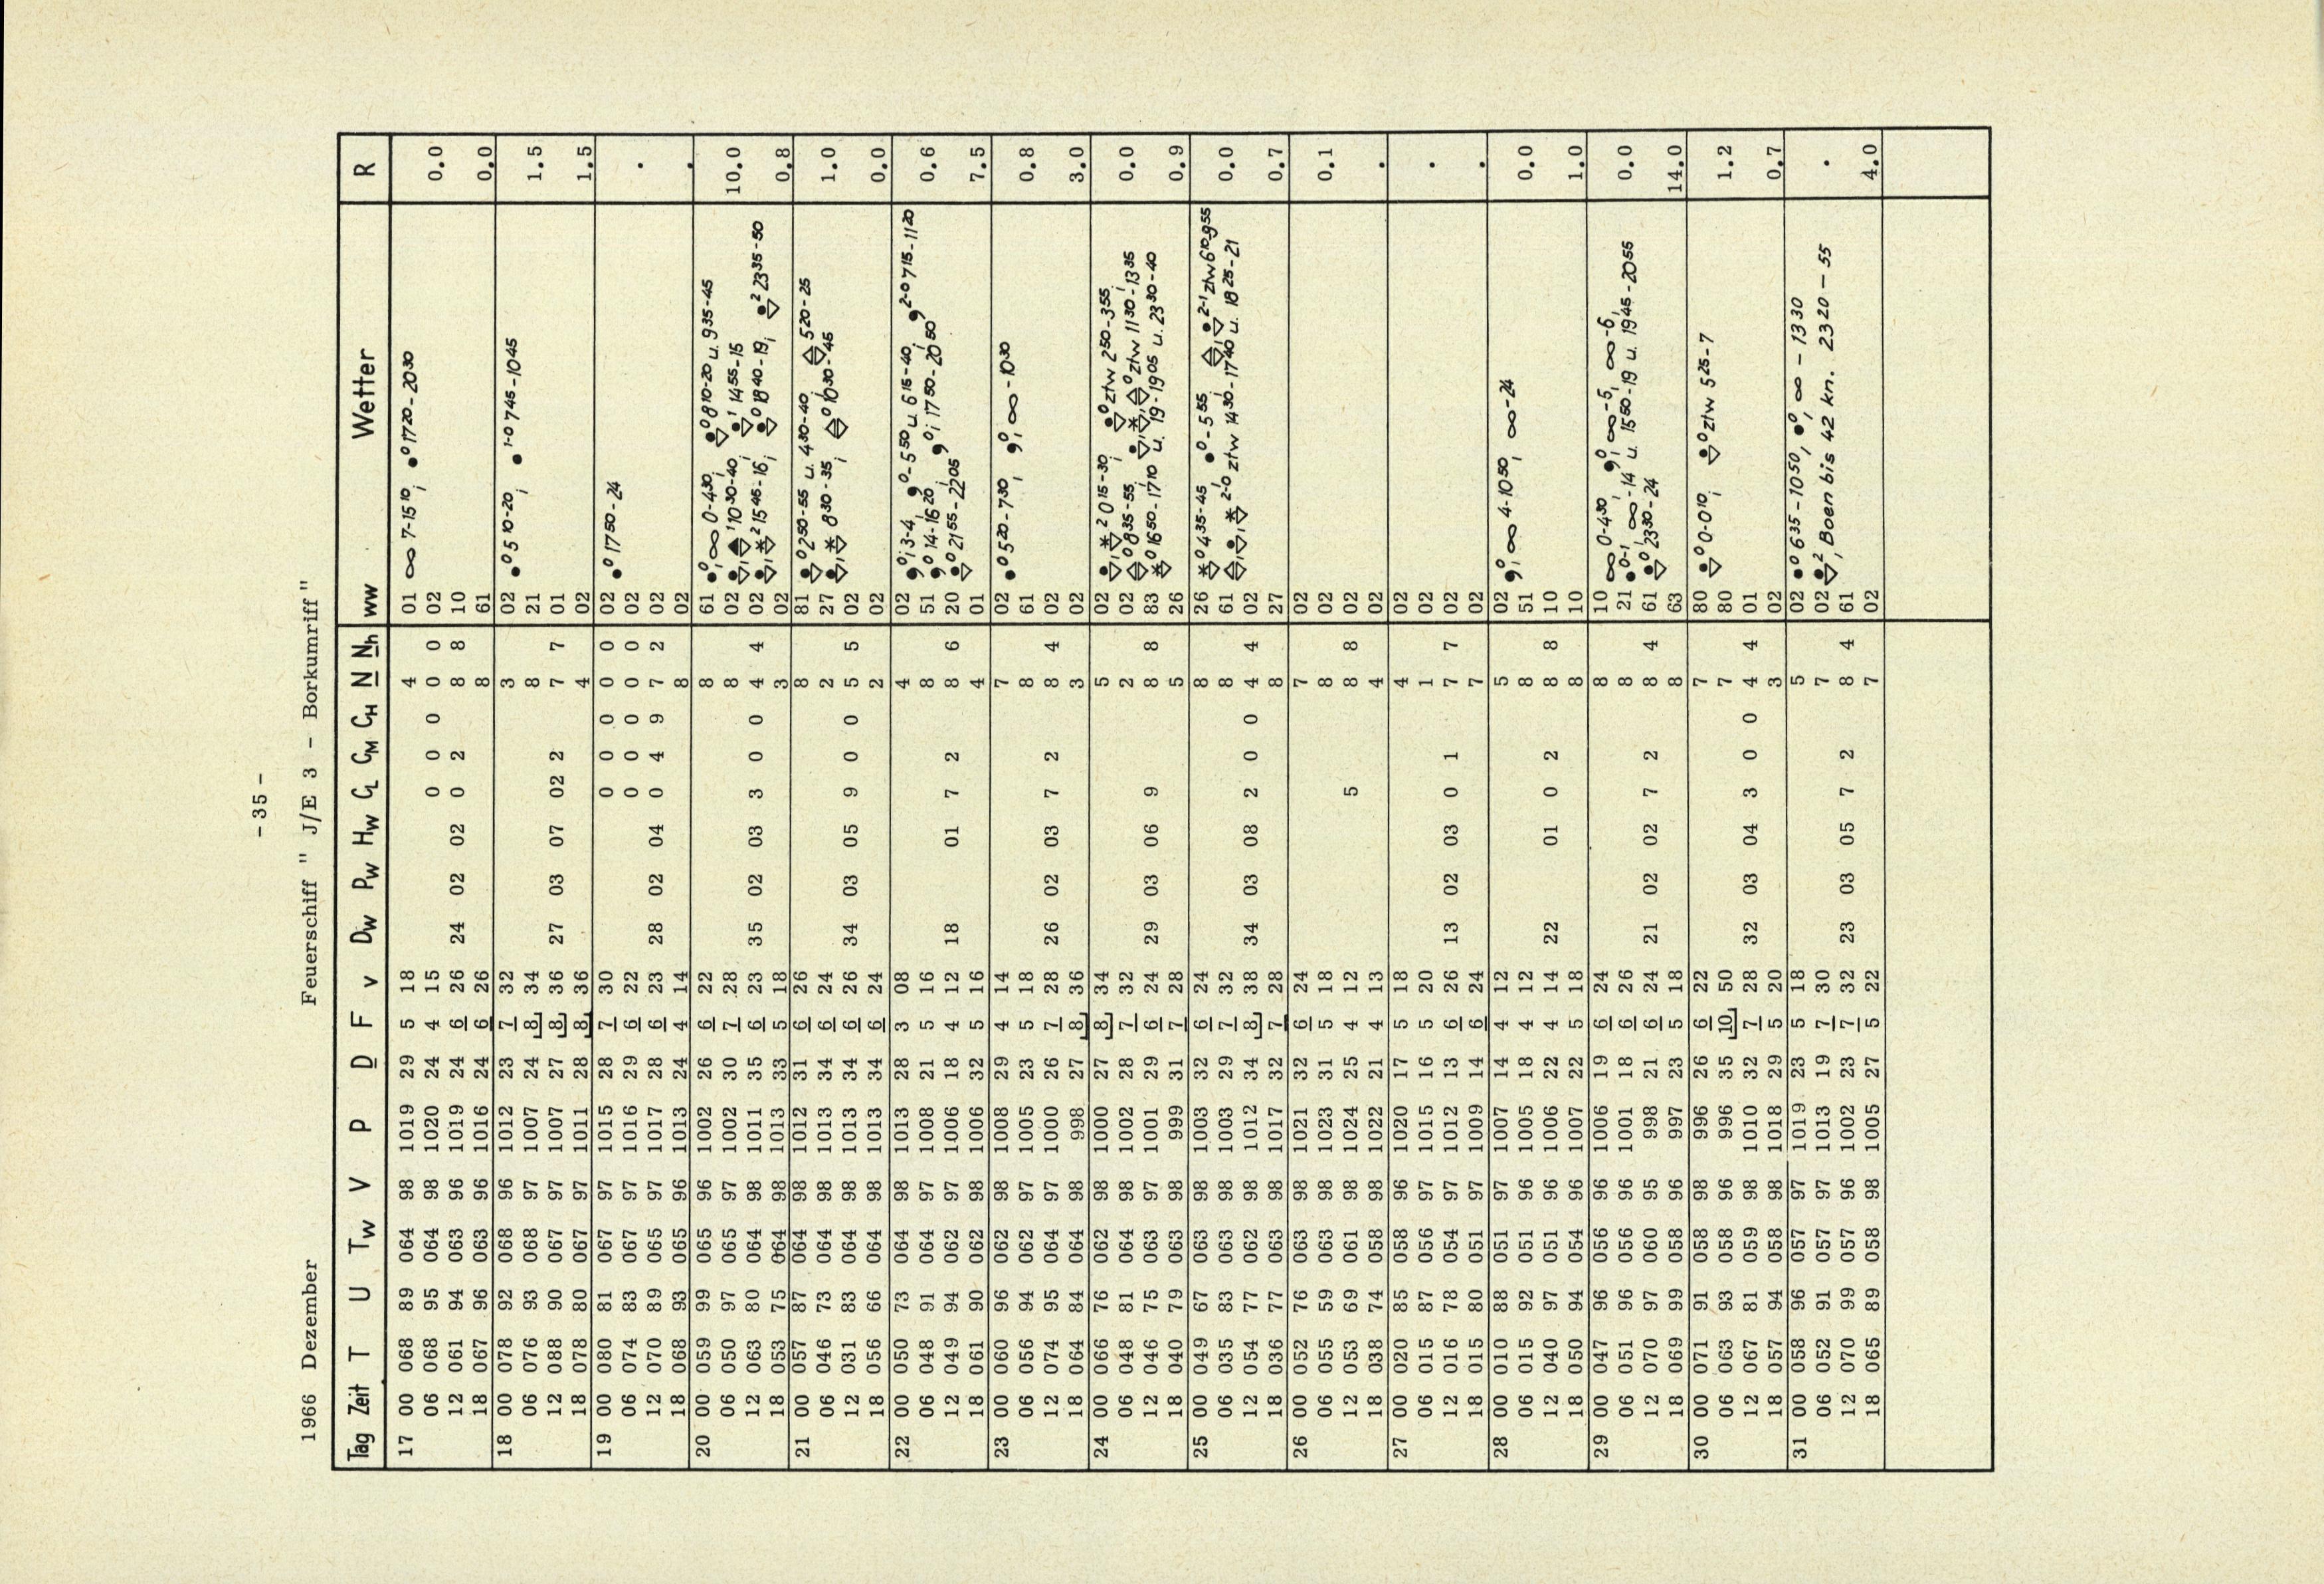 - 35 -
1966 Dezember Feuerschiff " J/E 3 - Borkumriff "
Tag Zeit T U Tw V P D F v Dw Pw Hw CL CM CH N Nh ww Wetter R
17 00 068 89 064 98 1019 29 5 18 4 01 ∞ 7-15¹⁰, ●⁰ 17²⁰-20³⁰
06 068 95 064 98 1020 24 4 15 0 0 0 0 0 02 0.0
12 061 94 063 96 1019 24 6 26 24 02 02 0 2 8 8 10
18 067 96 063 96 1016 24 6 26 8 61 0.0
18 00 078 92 068 96 1012 23 7 32 3 02 ●⁰ 5¹⁰-20, ●¹⁻⁰ 7⁴⁵-10⁴⁵
06 076 93 068 97 1007 24 8 34 8 21 1.5
12 088 90 067 97 1007 27 8 36 27 03 07 02 2 7 7 01
18 078 80 067 97 1011 28 8 36 4 02 1.5
19 00 080 81 067 97 1015 28 7 30 0 0 0 0 0 02 ●⁰ 17⁵⁰-24
06 074 83 067 97 1016 29 6 22 0 0 0 0 0 02 .
12 070 89 065 97 1017 28 6 23 28 02 04 0 4 9 7 2 02
18 068 93 065 96 1013 24 4 14 8 02 .
20 00 059 99 065 96 1002 26 6 22 8 61 ●⁰, ∞ 0-4³⁰, 8¹⁰-20 u. 9³⁵-45
06 050 97 065 97 1002 30 7 28 8 02 10³⁰-40, 14⁵⁵-15 10.0
12 063 80 064 98 1011 35 6 23 35 02 03 3 0 0 4 4 02 15⁴⁵-16, 18⁴⁰-19, 23³⁵-50
18 053 75 064 98 1013 33 5 18 3 02 0.8
21 00 057 87 064 98 1012 31 6 26 8 81 2⁵⁰-55 u. 4³⁰-40, 5²⁰-25
06 046 73 064 98 1013 34 6 24 2 27 8³⁰-35, 10³⁰-45 1.0
12 031 83 064 98 1013 34 6 26 34 03 05 9 0 0 5 5 02
18 056 66 064 98 1013 34 6 24 2 02 0.0
22 00 050 73 064 98 1013 28 3 08 4 02 3-4, 0-5⁵⁰ u. 6¹⁵-40, 7¹⁵-11²⁰
06 048 91 064 97 1008 21 5 16 8 51 14-16²⁰, 17⁵⁰-20⁵⁰ 0.6
12 049 94 062 97 1006 18 4 12 18 01 7 2 8 6 20 21⁵⁵-22⁰⁵
18 061 90 062 98 1006 32 5 16 4 01 7.5
23 00 060 96 062 98 1008 29 4 14 7 02 ●⁰ 5²⁰-7³⁰, ∞ -10³⁰
06 056 94 062 97 1005 23 5 18 8 61 0.8
12 074 95 064 97 1000 26 7 28 26 02 03 7 2 8 4 02
18 064 84 064 98 998 27 8 36 3 02 3.0
24 00 066 76 062 98 1000 27 8 34 5 02 0¹⁵-30, ztw 2⁵⁰-3⁵⁵
06 048 81 064 98 1002 28 7 32 2 02 8³⁵-55, ztw 11³⁰-13³⁵ 0.0
12 046 75 063 97 1001 29 6 24 29 03 06 9 8 8 83 16⁵⁰-17¹⁰ u. 19-19⁰⁵ u. 23³⁰-40
18 040 79 063 98 999 31 7 28 5 26 0.9
25 00 049 67 063 98 1003 32 6 24 8 26 4³⁵-45, ●⁰ -5⁵⁵, ztw 6¹⁰-9⁵⁵
06 035 83 063 98 1003 29 7 32 8 61 ztw 14³⁰-17⁴⁰ u. 18²⁵-21 0.0
12 054 77 062 98 1012 34 8 38 34 03 08 2 0 0 4 4 02
18 036 77 063 98 1017 32 7 28 8 27 0.7
26 00 052 76 063 98 1021 32 6 24 7 02
06 055 59 063 98 1023 31 5 18 8 02 0.1
12 053 69 061 98 1024 25 4 12 5 8 8 02
18 038 74 058 98 1022 21 4 13 4 02 .
27 00 020 85 058 96 1020 17 5 18 4 02
06 015 87 056 97 1015 16 5 20 1 02 .
12 016 78 054 97 1012 13 6 26 13 02 03 0 1 7 7 02
18 015 80 051 97 1009 14 6 24 7 02 .
28 00 010 88 051 97 1007 14 4 12 5 02 ∞ 4-10⁵⁰, ∞ -24
06 015 92 051 96 1005 18 4 12 8 51 0.0
12 040 97 051 96 1006 22 4 14 22 01 0 2 8 8 10
18 050 94 054 96 1007 22 5 18 8 10 1.0
29 00 047 96 056 96 1006 19 6 24 8 10 ∞ 0-4³⁰, ∞ -5, ∞ -6,
06 051 96 056 96 1001 18 6 26 8 21 ●⁰⁻¹, ∞ -14 u. 15⁵⁰-19 u. 19⁴⁵-20⁵⁵ 0.0
12 070 97 060 95 998 21 6 24 21 02 02 7 2 8 4 61 23³⁰-24
18 069 99 058 96 997 23 5 18 8 63 14.0
30 00 071 91 058 98 996 26 6 22 7 80 0-0¹⁰, ztw 5²⁵-7
06 063 93 058 96 996 35 10 50 7 80 1.2
12 067 81 059 98 1010 32 7 28 32 03 04 3 0 0 4 4 01
18 057 94 058 98 1018 29 5 20 3 02 0.7
31 00 058 96 057 97 1019 23 5 18 5 02 ●⁰ 6³⁵-10⁵⁰, ●⁰, ∞ -13³⁰
06 052 91 057 97 1013 19 7 30 7 02 Boen bis 42 kn. 23²⁰-55 .
12 070 99 057 96 1002 23 7 32 23 03 05 7 2 8 4 61
18 065 89 058 98 1005 27 5 22 7 02 4.0